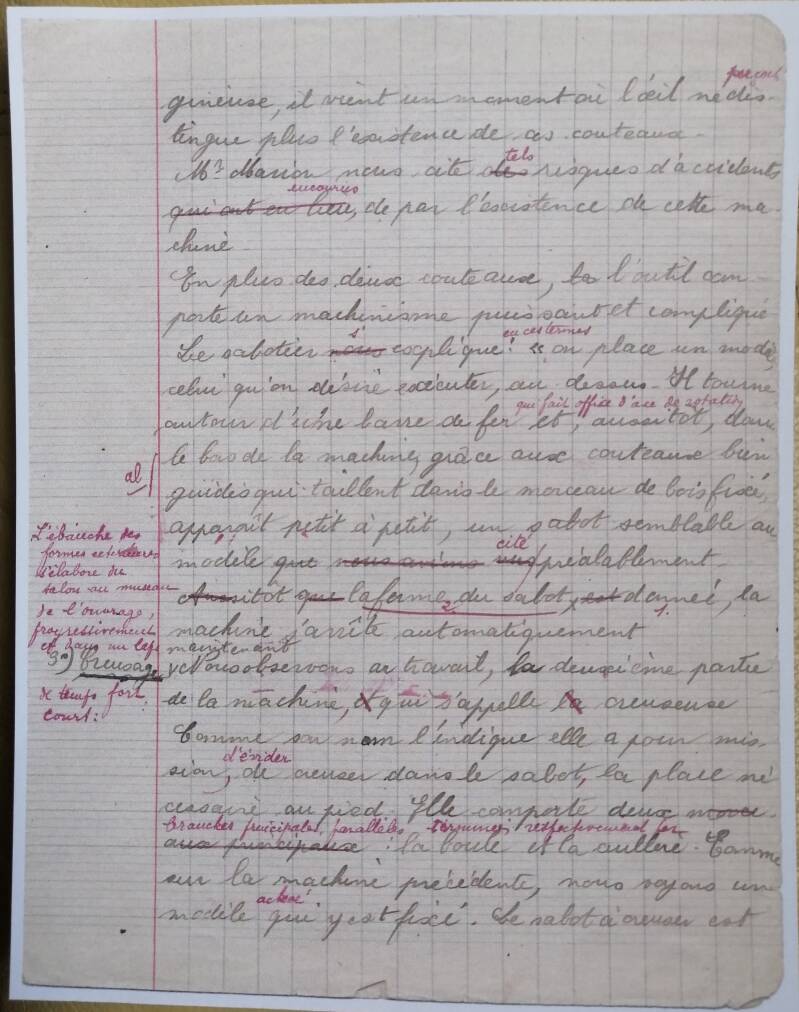 gineuse, il vient un moment où l'œil ne dis-
tingue plus l'existence de ces couteaux.
tels
Mr Marion nous cite des risques d'accidents
encourus
qui ont eu lieu, de par l'existence de cette ma-
chine.
En plus des deux couteaux, l'outil com-
porte un machinisme puissant et compliqué
s' en ces termes
Le sabotier nous explique : "on place un modèle,
celui qu'on désire exécuter, au dessus. Il tourne
qui fait office d'axe de rotation
autour d'une barre de fer et, aussitôt, dans
al
le bas de la machine, grâce aux couteaux bien
guidés qui taillent dans le morceau de bois fixé,
apparaît petit à petit, un sabot semblable au
cité
modèle que nous avions vu préalablement.
Aussitot que la forme du sabot, est donnée, la
2 1.
machine s'arrête automatiquement
L'ébauche des
formes extérieures
s'élabore du
talon au museau
de l'ouvrage,
progressivement
et dans un laps
de temps fort
court :
maintenant
3°) Creusage
Nous observons au travail, la deuxième partie
de la machine, et qui s'appelle la creuseuse
Comme son nom l'indique elle a pour mis-
d'évider
sion, de creuser dans le sabot, la place né
cessaire au pied. Elle comporte deux morce-
branches principales, parallèles terminées respectivement par
aux principaux : la boule et la cuillère. Comme
sur la machine précédente, nous voyons un
achevé
modèle qui y est fixé. Le sabot à creuser est